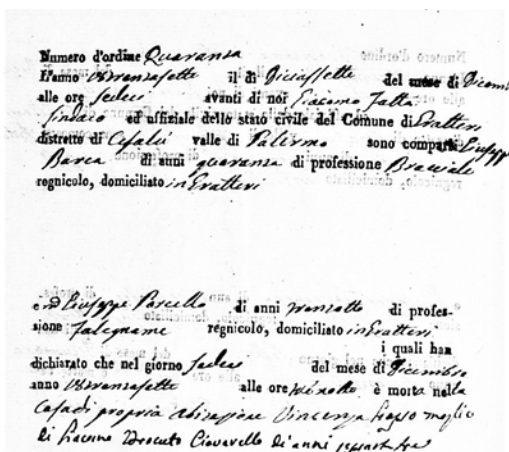 Numero d'ordine Quaranta
L'anno 18trentasette il dì Diciassette del mese di Dicemb
alle ore sedici avanti di noi Giacomo
Sindaco ed uffiziale dello stato civile del Comune di Gratteri
distretto di Cefalù valle di Palermo sono comparsi Giuseppe
Barca di anni quaranta di professione Bracciale
regnicolo, domiciliato in Gratteri
ed Giuseppe Porcello di anni trentotto di profes-
sione Falegname regnicolo, domiciliato in Gratteri
i quali han
dichiarato che nel giorno sedici del mese di Dicembre
anno 18trentasette alle ore è morta nella
Casa di propria abitazione Vincenza moglie
di Giacomo Ciovarello di anni